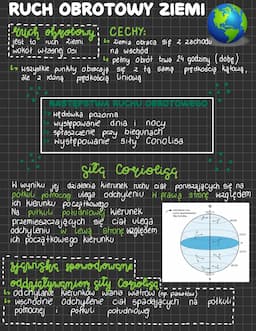 RUCH OBROTOWY ZIEMI
ruch obrotowy
jest to ruch Ziemi
wokół własnej osi
CECHY:
Ziemia obraca się z zachodu
na wschód
pełny obrót trwa 24 godziny (dobę)
wszystkie punkty obracają się z tą samą prędkością kątową,
ale z różną prędkością liniową
NASTĘPSTWA RUCHU OBROTOWEGO
wędrówka pozorna
występowanie dnia i nocy
spłaszczenie przy biegunach
występowanie siły Coriolisa
siła Coriolisa
W wyniku jej działania kierunek ruchu ciał poruszających się na
półkuli północnej ulega odchyleniu w prawą stronę względem
ich kierunku początkowego
Na półkuli południowej kierunek
przemieszczających się ciał ulega
odchyleniu w lewą stronę względem
ich początkowego kierunku
zjawiska spowodowane
oddziaływaniem siły Coriolisa
odchylanie kierunków wiania wiatrów (np. pasatów)
wschodnie odchylenie ciał spadających na półkuli
północnej i półkuli południowej